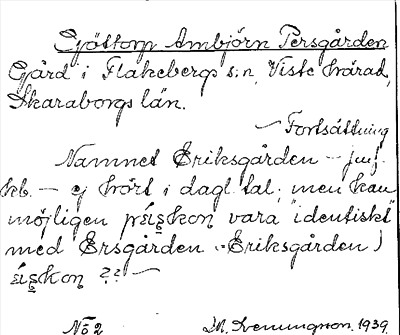 Sjöttorp Ambjörn Persgården
Gård i Flakebergs s:n, Viste härad,
Skaraborgs län.
— Fortsättning
Namnet Eriksgården — jmf.
kb. — ej hört i dagl. tal; men kan
möjligen vara "identiskt"
med Ersgården = Eriksgården)
??—
No 2
1939.